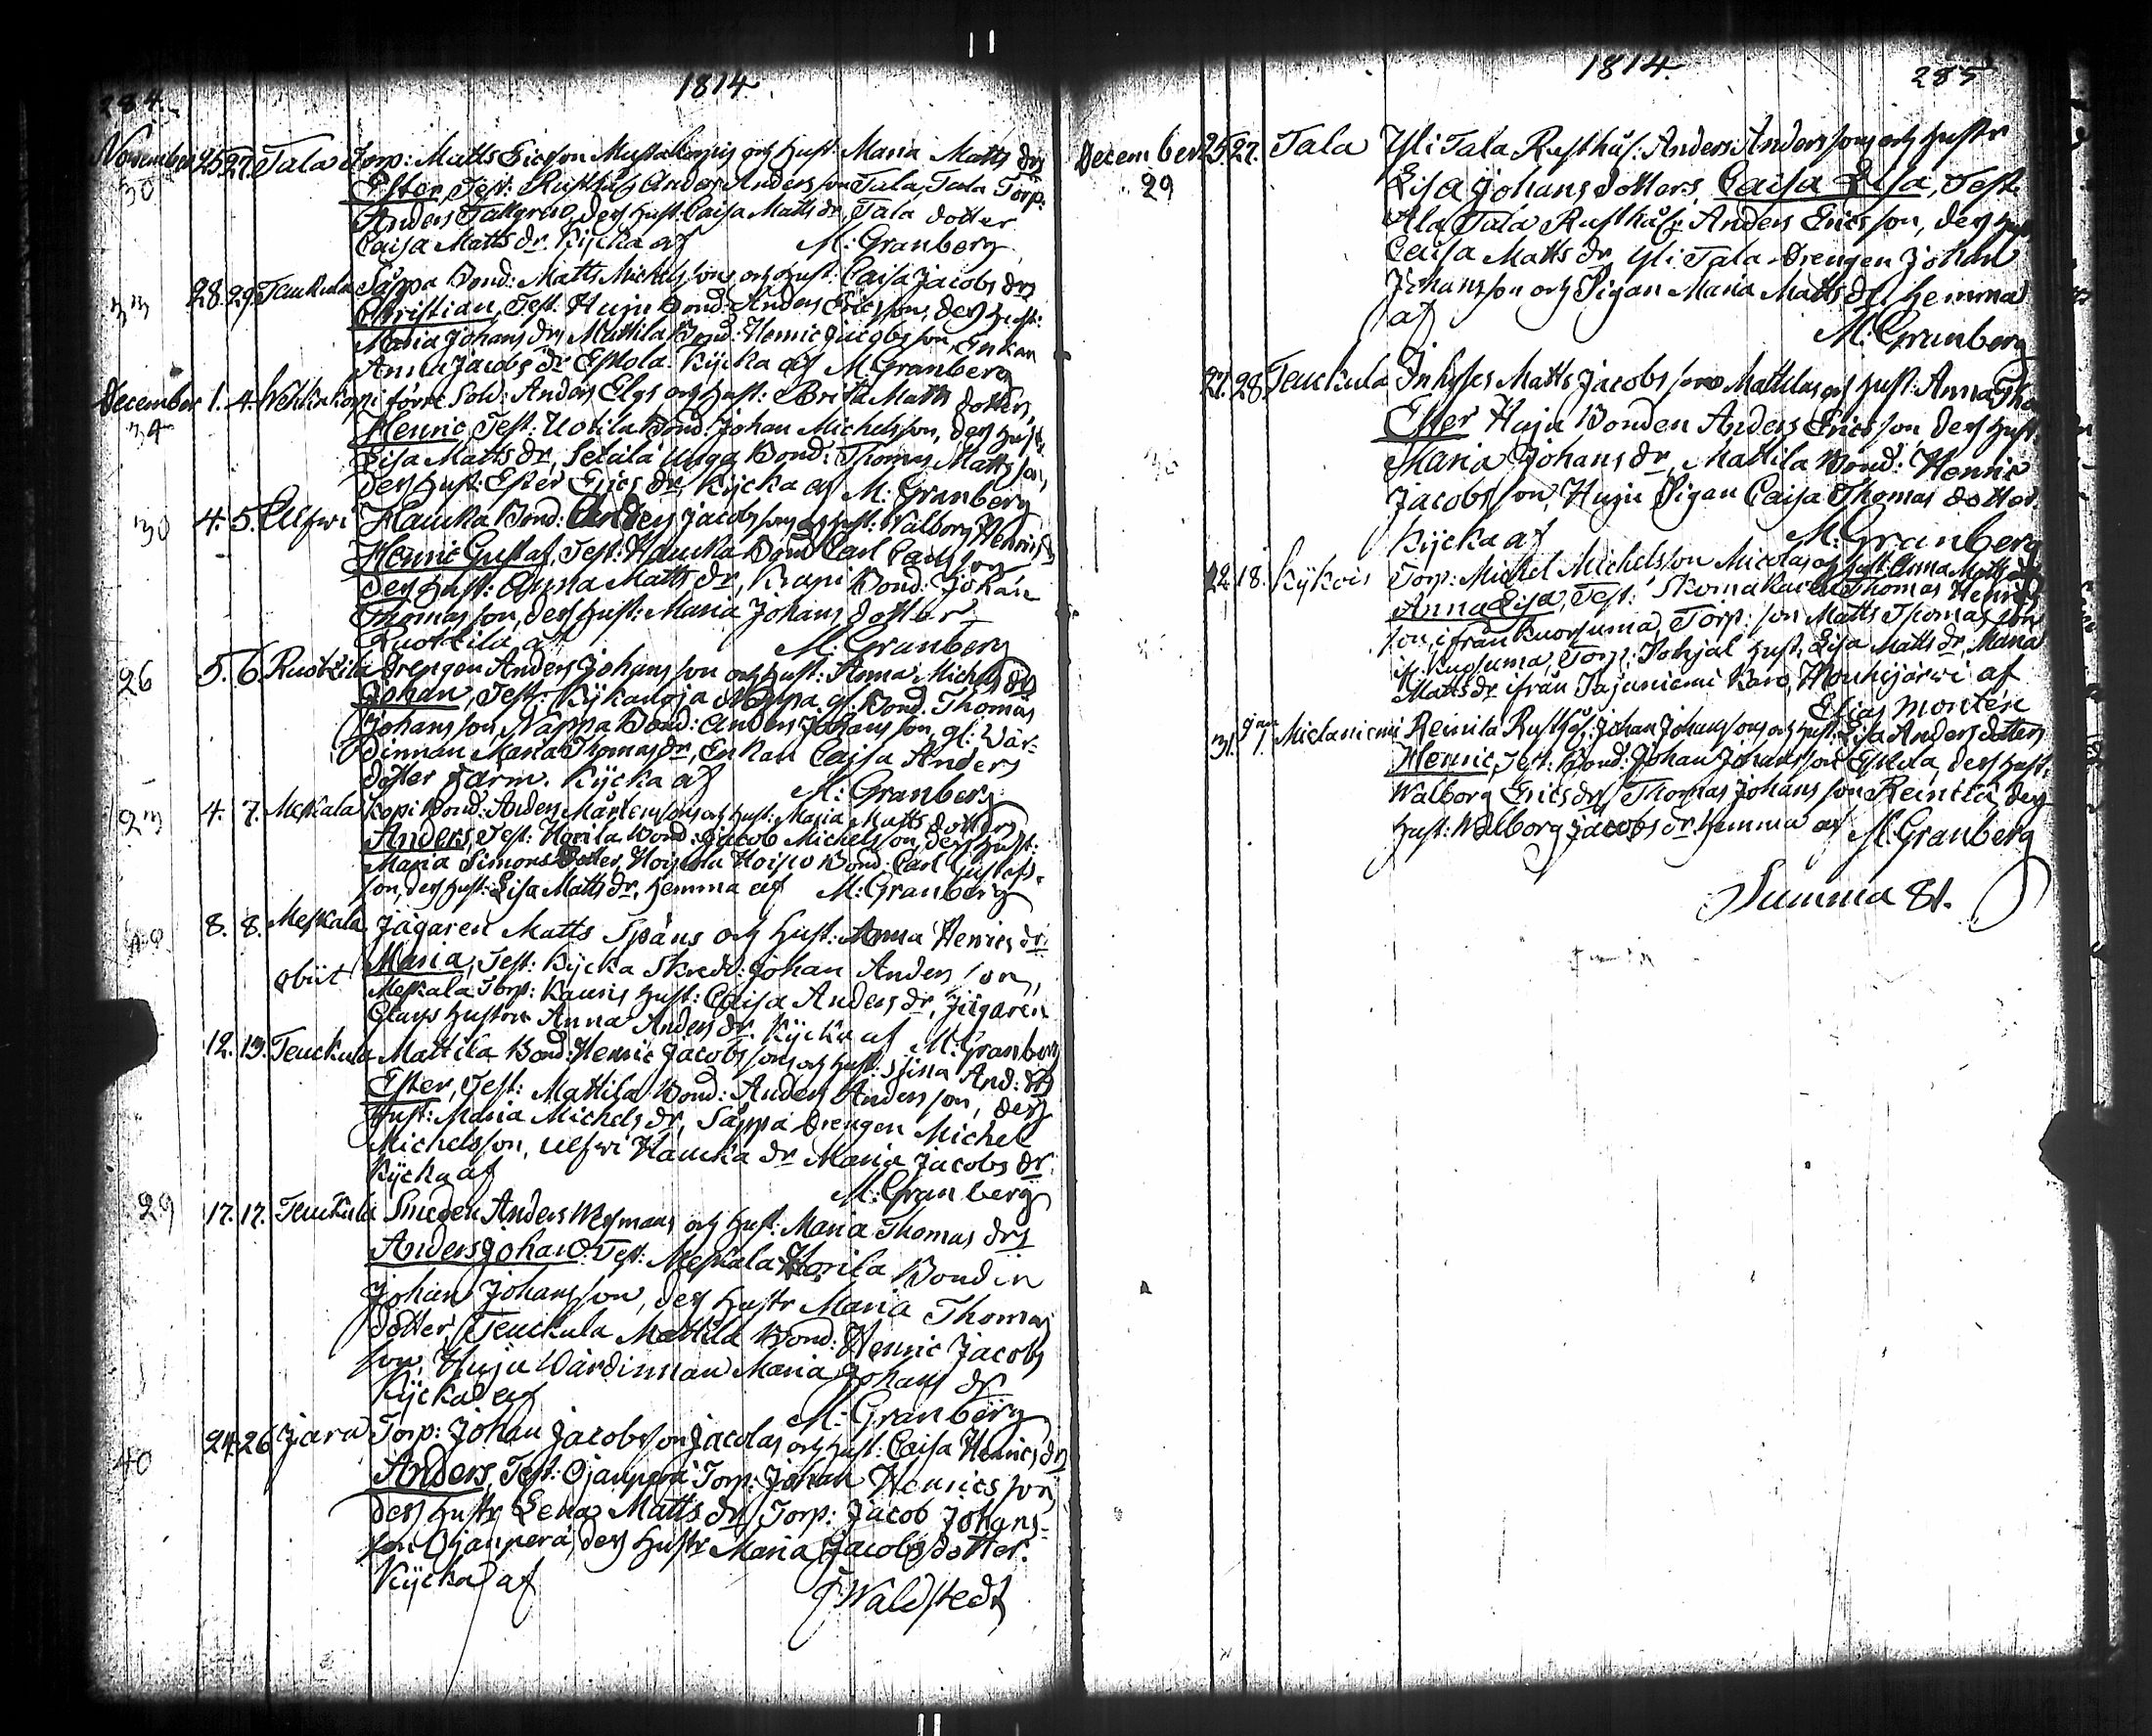 284. 1814
November 25. 27. Tala Torp: Matts Ericsson och Hust: Maria Matts drs
30 Ester, Test: Rusthåls Anders Andersson Tala, Tala Torp:
Anders Tallgren, des Hust: Caisa Matts dr, Tala dotter
Caisa Matts dr. Kijcka af M: Granberg
33 28. 29. Teuckula Säppä Bond: Matts Michelssons och Hust: Caisa Jacobs drs
Christian, Test: Huju Bond: Anders Ericsson, des Hust:
Maria Johans dr, Mattila Bond: Henric Jacobsson, Enkan
Anna Jacobs dr Eskola. Kijcka af M: Granberg
December 1. 4. förre Sold: Anders Elgs och Hust: Brita Matts dotters,
34 Henric, Test: Uotila Bond: Johan Michelsson, des Hust:
Lisa Matts dr, Setälä Bond: Thomas Mattsson,
des Hust: Ester Erics dr, Kijcka af M: Granberg
30 4. 5. Ulfwi Haucka Bond: Anders Jacobssons och Hust: Walborg Henricsdrs
Henric Gustaf, Test: Haucka Bond: Carl Carlsson
des Hust: Anna Matts dr, Krapi Bond: Johan
Thomasson, des Hust: Maria Johans dotter
Ruotzila, af M: Granberg
26 5. 6. Ruotzila Drengen Anders Johansson och Hust: Anna Michels drs
Johan, Test: Kijkänoja Nappa gl: Bond: Thomas
Johansson, Nappa Bond: Anders Johansson, gl: Wär-
dinnan Maria Thomas dr, Enkan Caisa Anders
dotter Jarw. Kijcka af M: Granberg
23 4. 7. Meskala Kopi Bond: Anders Mårtenssons och Hust: Maria Matts dotters
Anders, Test: Horila Bond: Jacob Michelsson, des Hust:
Maria Simons dotter, Hoisko Bond: Carl Gustafs-
son, des Hust: Lisa Matts dr. Hemma af M: Granberg
8. 8. Meskala Jägaren Matts Späns och Hust: Anna Henrics dr:
obiit Maria, Test: Kijcka Skredd: Johan Andersson,
Meskala Torp: Hust: Caisa Anders dr, Jägaren
Hustru Anna Anders dr. Kijcka af M: Granberg
12. 13. Teuckula Mattila Bond: Henric Jacobssons och Hust: Stina And: drs
Ester, Test: Mattila Bond: Anders Andersson, des
Hust: Maria Michels dr, Säppä Drengen Michel
Michelsson, Ulfwi Haucka dr Maria Jacobs dr.
Kijcka af M: Granberg
29 17. 17. Teuckula Smeden Anders Wesmans och Hust: Maria Thomas drs
Anders Johan. Test: Meskala Horila Bonden
Johan Johansson, des Hustr Maria Thomas
dotter, Teuckula Mattila Bond: Henric Jacobs
son, Huju Wärdinnan Maria Johans dr
Kijcka af M: Granberg
40 24. 26. Jara Torp: Johan Jacobsson Jacolas och Hust: Caisa Henrics drs
Anders, Test: Ojanperä Torp: Johan Henricsson,
des Hustr Lena Matts dr, Torp: Jacob Johans-
son Ojanperä, des Hustr Maria Jacobs dotter.
Kijcka af J: Waldstedt
1814. 285
December 25. 27. Tala Yli Tala Rusthål: Anders Anderssons och Hustr
29 Lisa Johans dotters, Caisa Lisa, Test.
Ala Tala Rusthål: Anders Ericsson, des Hust
Caisa Matts dr, Yli Tala Drengen Johan
Johansson och Pigan Maria Matts dr. Hemma
af
M: Granberg
27. 28. Teuckula Inhyses Matts Jacobssons Mattilas och Hust: Anna
36 Ester Huju Bonden Anders Ericsson, des Hust:
Maria Johans dr, Mattila Bond: Henric
Jacobsson, Huju Pigan Caisa Thomas dotter.
Kijcka af M: Granberg
22. 18. Kykois Torp: Michel Michelsson Nicolas och Hust: Anna Matts
Anna Lisa, Test: Skomakaren Thomas Henrics
son, ifrån Kuorsuma, Torp: son Matts Thomasson
Torp: Pohjal Hust. Lisa Matts dr, Maria
Matts dr ifrån Tajuniemi Mouhijärwi af
Elias Montén
31. Jan 1. Mietaniemi Reinilä Rusthål: Johan Johanssons och Hust: Lisa Anders dotters
Henric, Test: Bond: Johan Johansson Eskola, des Hust:
Walborg Erics dr, Thomas Johansson Reinilä, des
Hust: Walborg Jacobs dr Hemma af M: Granberg
Summa 81.